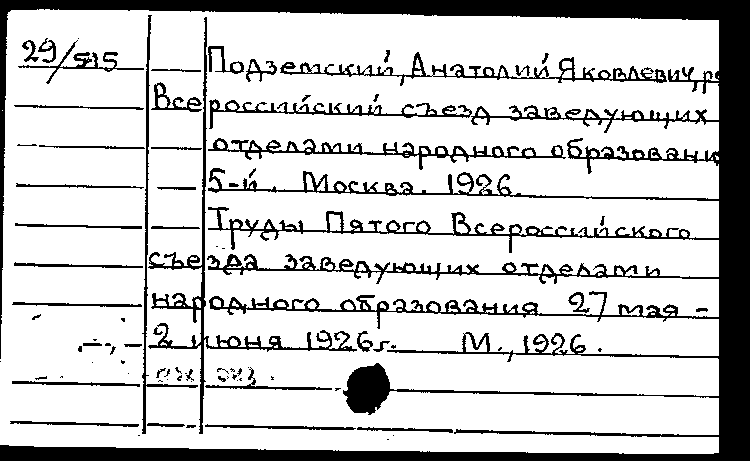 29/515 Подземский, Анатолий Яковлевич, ре
Всероссийский съезд заведующих
отделами народного образовани
5-й. Москва. 1926.
Труды Пятого Всероссийского
съезда заведующих отделами
народного образования 27 мая -
2 июня 1926г. М., 1926.